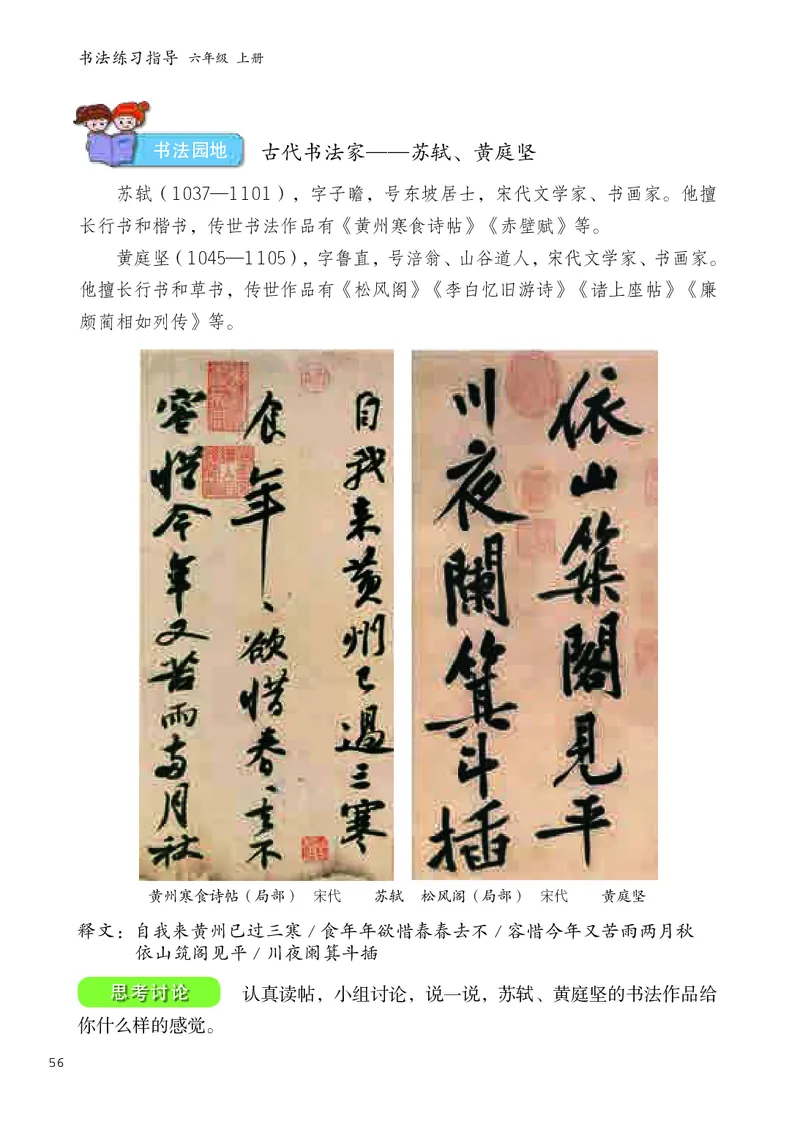 书法练习指导 六年级 上册
书法园地
古代书法家——苏轼、黄庭坚
苏轼（1037—1101），字子瞻，号东坡居士，宋代文学家、书画家。他擅
长行书和楷书，传世书法作品有《黄州寒食诗帖》《赤壁赋》等。
黄庭坚（1045—1105），字鲁直，号涪翁、山谷道人，宋代文学家、书画家。
他擅长行书和草书，传世作品有《松风阁》《李白忆旧游诗》《诸上座帖》《廉
颇蔺相如列传》等。
自我来黄州已過三寒
食年、欲惜春、去不
容惜今年又苦雨两月秋
依山築閣見平
川夜闌箕斗插
黄州寒食诗帖（局部） 宋代 苏轼
松风阁（局部） 宋代 黄庭坚
释文：自我来黄州已过三寒/食年年欲惜春春去不/容惜今年又苦雨两月秋
依山筑阁见平/川夜阑箕斗插
思考讨论
认真读帖，小组讨论，说一说，苏轼、黄庭坚的书法作品给
你什么样的感觉。
56